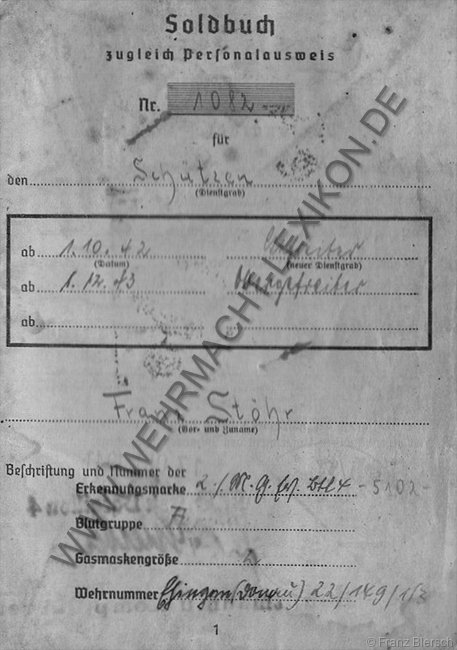 Soldbuch
zugleich Personalausweis
Nr. 1082
für
den Schützen
(Dienstgrad)
ab 1.10.42
(Datum) (neuer Dienstgrad)
ab 1.12.43 Obergefreiter
ab
Franz Stöhr
(Vor- und Zuname)
Beschriftung und Nummer der
Erkennungsmarke 2./M.G. Btl 4 - 5102 -
Blutgruppe A
Gasmaskengröße 2
Wehrnummer Ehingen (Donau) 22/149/1/2
1
WWW.WEHRMACHT-LEXIKON.DE
© Franz Blersch